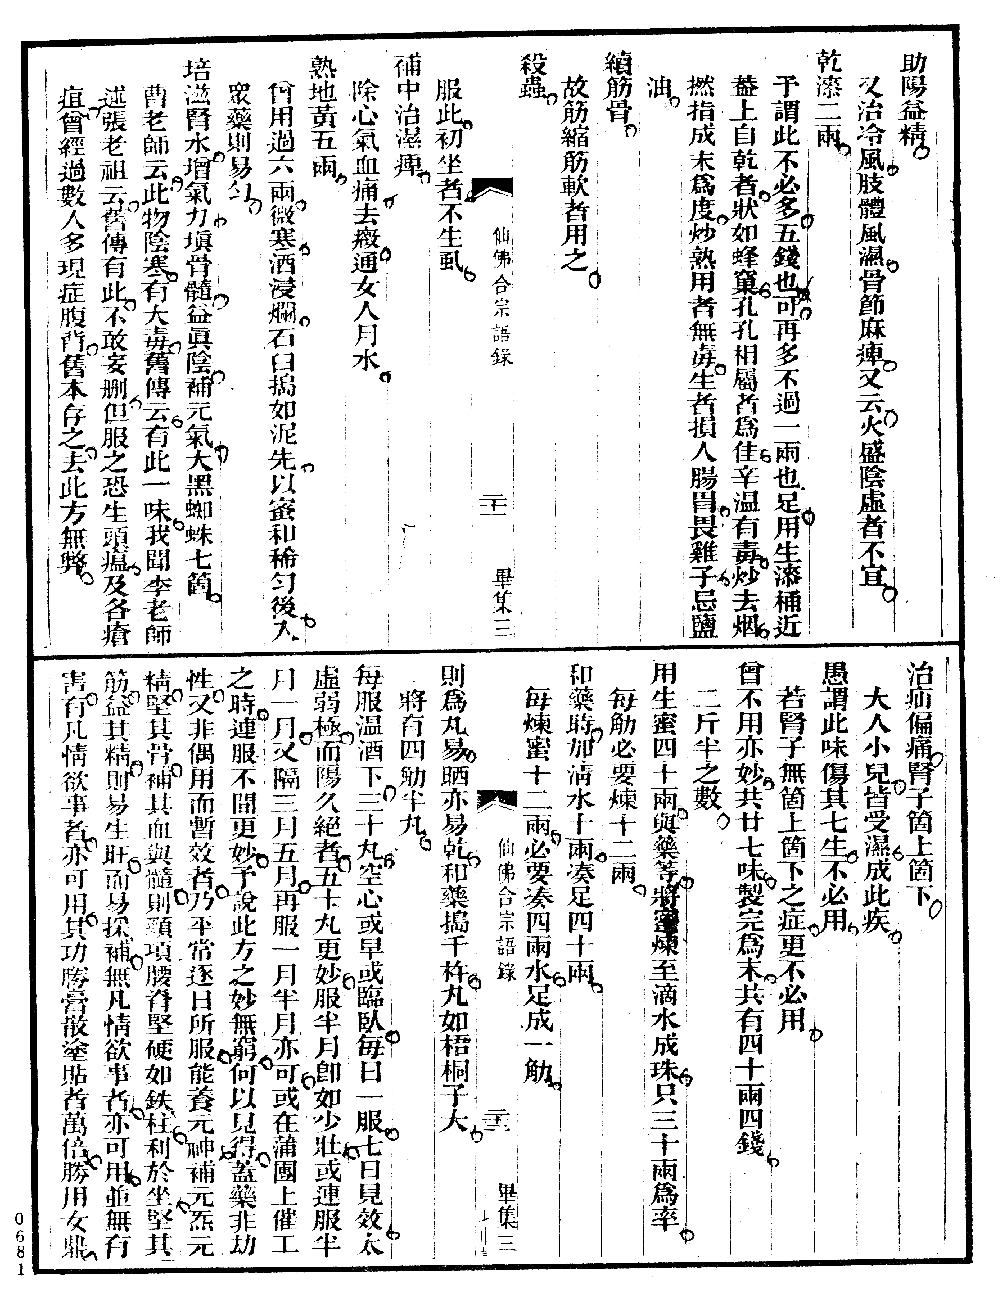 助陽益精
又治冷風肢體風濕骨節麻痺又云火盛陰虛者不宜
乾漆二兩
予謂此不必多五錢也可再多不過一兩也足用生漆桶近
葢上自乾者狀如蜂窠孔孔相屬者爲佳辛温有毒炒去烟
撚指成末爲度炒熟用者無毒生者損人腸胃畏雞子忌鹽
油
續筋骨
故筋縮筋軟者用之
殺蟲
服此初坐者不生虱
仙佛合宗語錄
二十一
畢集三
補中治濕痺
除心氣血痛去瘢通女人月水
熟地黃五兩
曾用過六兩微寒酒浸爛石臼搗如泥先以蜜和稀勻後入
衆藥則易勻
培滋腎水增氣力塡骨髓益眞陰補元氣大黑蜘蛛七箇
曹老師云此物陰寒有大毒舊傳云有此一味我聞李老師
述張老祖云舊傳有此不敢妄删但服之恐生頭瘟及各瘡
疽曾經過數人多現症腹背舊本存之去此方無弊
治疝偏痛腎子箇上箇下
大人小兒皆受濕成此疾
愚謂此味傷其七生不必用
若腎子無箇上箇下之症更不必用
曾不用亦妙共廿七味製完爲末共有四十兩四錢
二斤半之數
用生蜜四十兩與藥等將蜜煉至滴水成珠只三十兩爲率
每觔必要煉十二兩
和藥時加清水十兩湊足四十兩
每煉蜜十二兩必要湊四兩水足成一觔
仙佛合宗語錄
畢集三
則爲丸易晒亦易乾和藥搗千杵丸如梧桐子大
將有四觔半丸
每服温酒下三十丸空心或早或臨臥每日一服七日見效太
虛弱極而陽久絕者五十丸更妙服半月卽如少壯或連服半
月一月又隔三月五月再服一月半月亦可或在蒲團上催工
之時連服不間更妙予說此方之妙無窮何以見得蓋藥非劫
性又非偶用而暫效者乃平常逐日所服能養元神補元炁元
精堅其骨補其血與髓則頸項腰脊堅硬如鉄柱利於坐堅其
筋益其精則易生旺而易採補無凡情欲事者亦可用並無有
害有凡情欲事者亦可用其功勝膏散塗貼者萬倍勝用女鼎
0681